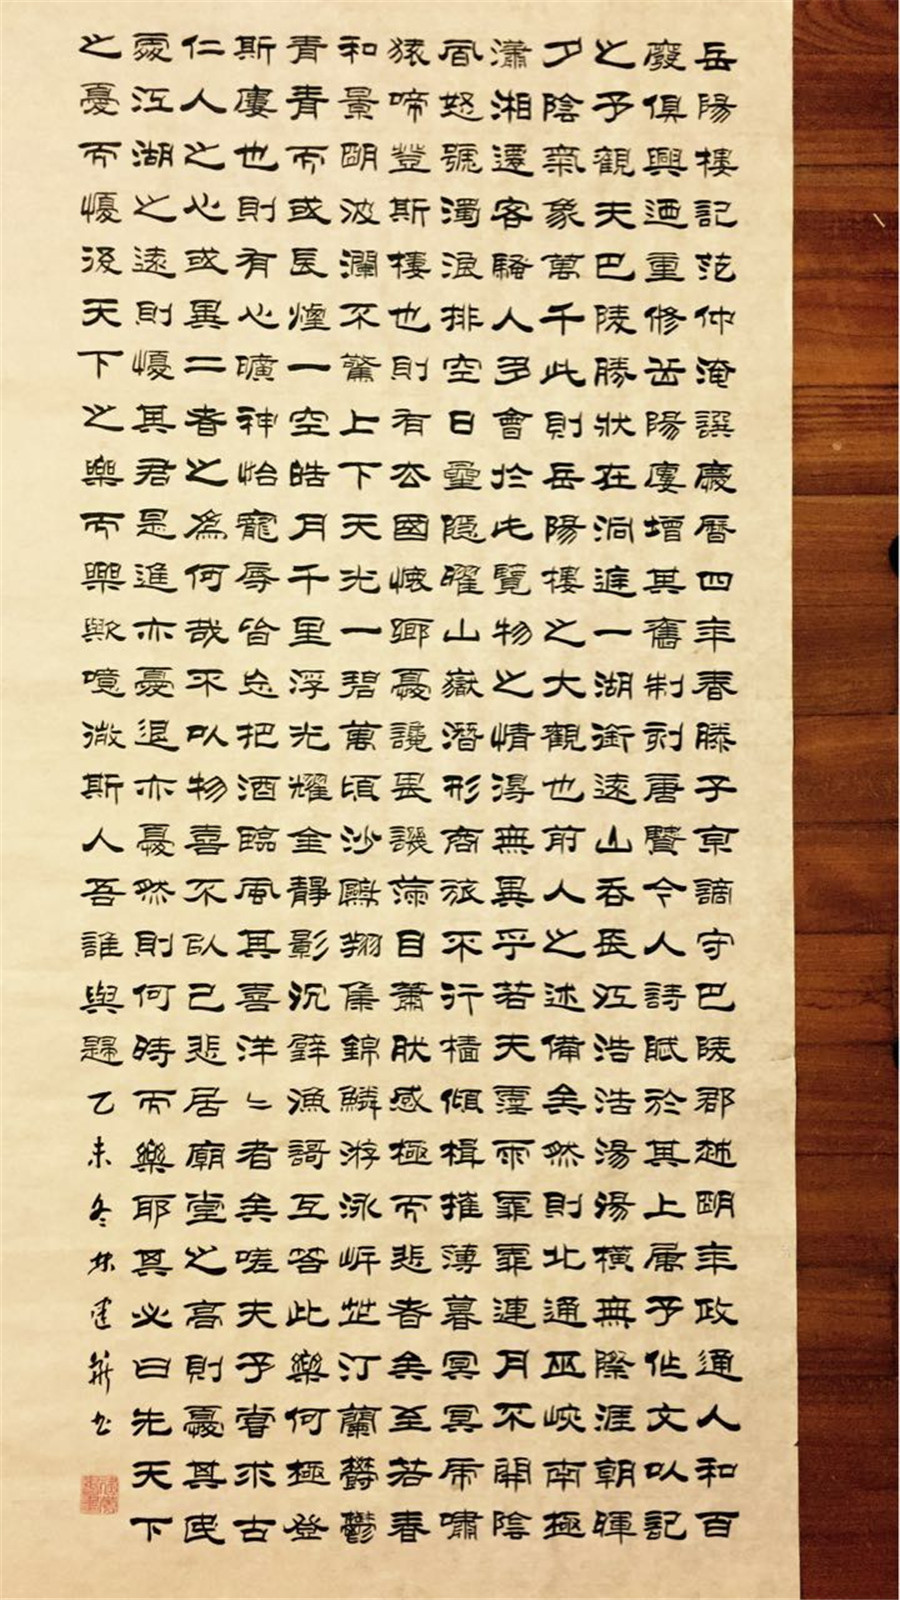 岳陽樓記范仲淹譔慶曆四年春滕子京謫守巴陵郡越明年政通人和百
廢俱興迺重修岳陽廔增其舊制刻唐賢今人詩賦於其上屬予作文以記
之予觀夫巴陵勝狀在洞庭一湖銜遠山吞長江浩浩湯湯橫無際涯朝暉
夕陰氣象萬千此則岳陽樓之大觀也前人之述備矣然則北通巫峽南極
瀟湘遷客騷人多會於此覽物之情得無異乎若夫霪雨霏霏連月不開陰
風怒號濁浪排空日星隱曜山嶽潛形商旅不行檣傾楫摧薄暮冥冥虎嘯
猿啼登斯樓也則有去國懷鄉憂讒畏譏滿目蕭然感極而悲者矣至若春
和景明波瀾不驚上下天光一碧萬頃沙鷗翔集錦鱗游泳岸芷汀蘭鬱鬱
青青而或長煙一空皓月千里浮光耀金靜影沉璧漁謌互答此樂何極登
斯廔也則有心曠神怡寵辱皆忘把酒臨風其喜洋〻者矣嗟夫予嘗求古
仁人之心或異二者之為何哉不以物喜不以己悲居廟堂之高則憂其民
處江湖之遠則憂其君是進亦憂退亦憂然則何時而樂耶其必曰先天下
之憂而憂後天下之樂而樂歟噫微斯人吾誰與歸乙未冬林建華書